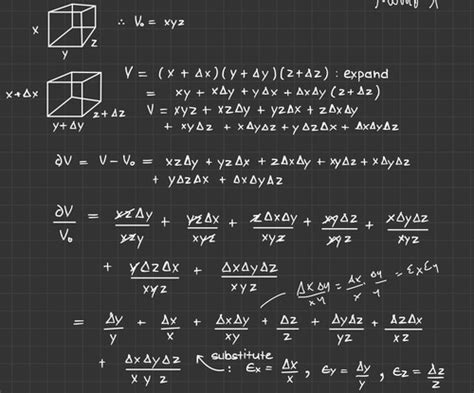 x y z ∴ V₀ = xyz
x+Δx y+Δy z+Δz
V = (x + Δx)(y + Δy)(z+Δz) : expand
= xy + xΔy + yΔx + ΔxΔy (z+Δz)
V = xyz + xzΔy + yzΔx + zΔxΔy
+ xyΔz + xΔyΔz + yΔzΔx + ΔxΔyΔz
∂V = V - V₀ = xzΔy + yzΔx + zΔxΔy + xyΔz + xΔyΔz
+ yΔzΔx + ΔxΔyΔz
∂V/V₀ = xzΔy/xzy + yzΔx/xyz + zΔxΔy/xyz + xyΔz/xyz + xΔyΔz/xyz
+ yΔzΔx/xyz + ΔxΔyΔz/xyz
ΔxΔy/xy = Δx/x · Δy/y = εxεy
= Δy/y + Δx/x + ΔxΔy/xy + Δz/z + ΔyΔz/yz + ΔzΔx/zx
+ ΔxΔyΔz/x y z
substitute : εx = Δx/x, εy = Δy/y, εz = Δz/z